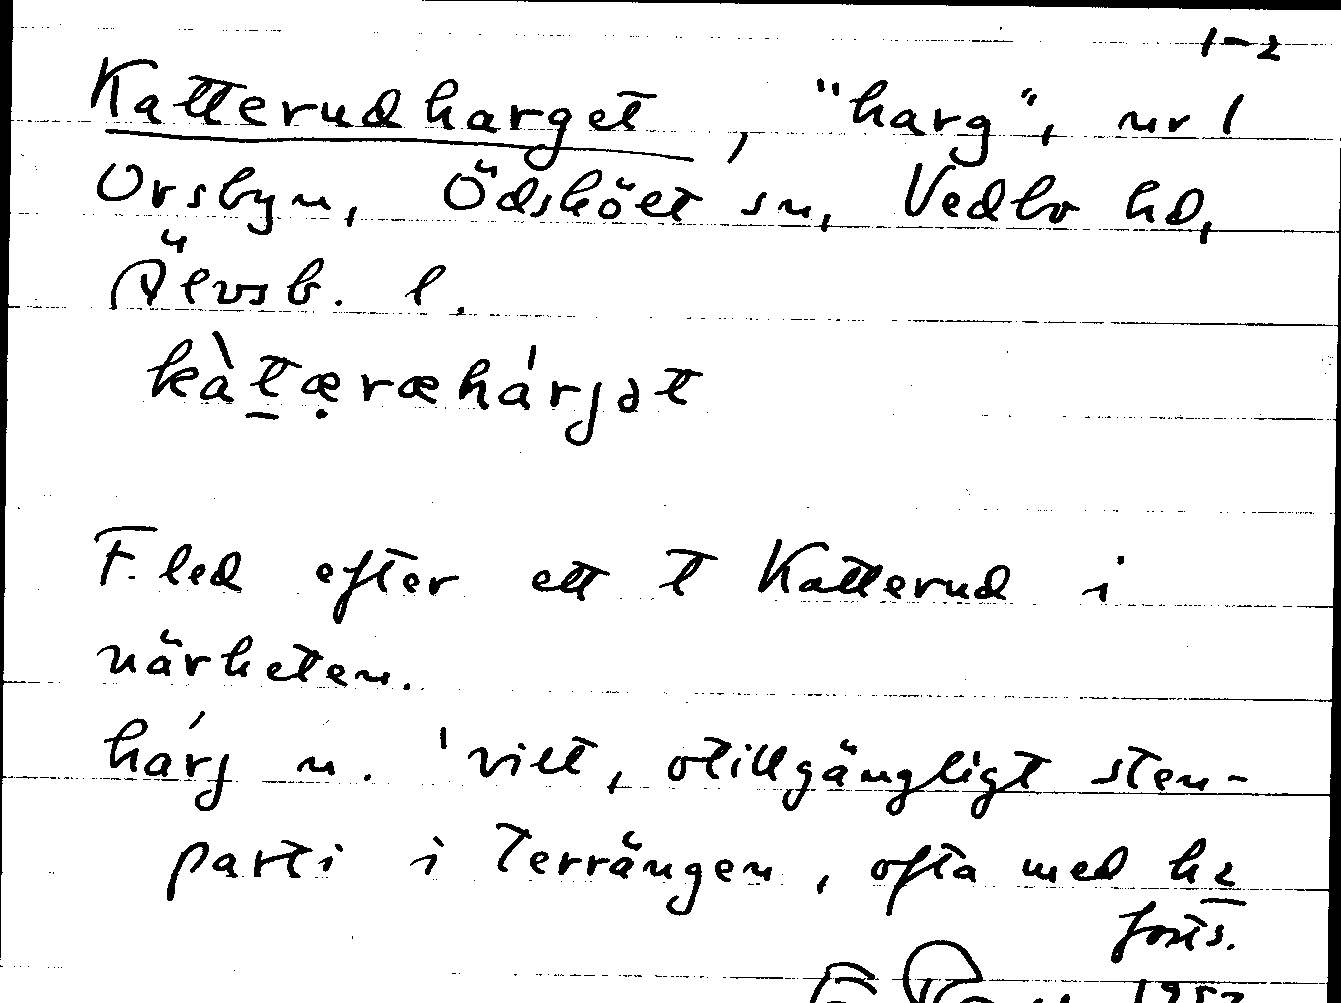 1-2
Katterudharget, "harg", nr 1
Orsbyn, Ödsköelt sn, Vedbo hd,
Älvsb. l.
kàt̲æ̣ræhárjət
F. led efter ett t Katterud i
närheten.
hárj n. 'vilt, otillgängligt sten-
parti i terrängen, ofta med
forts.